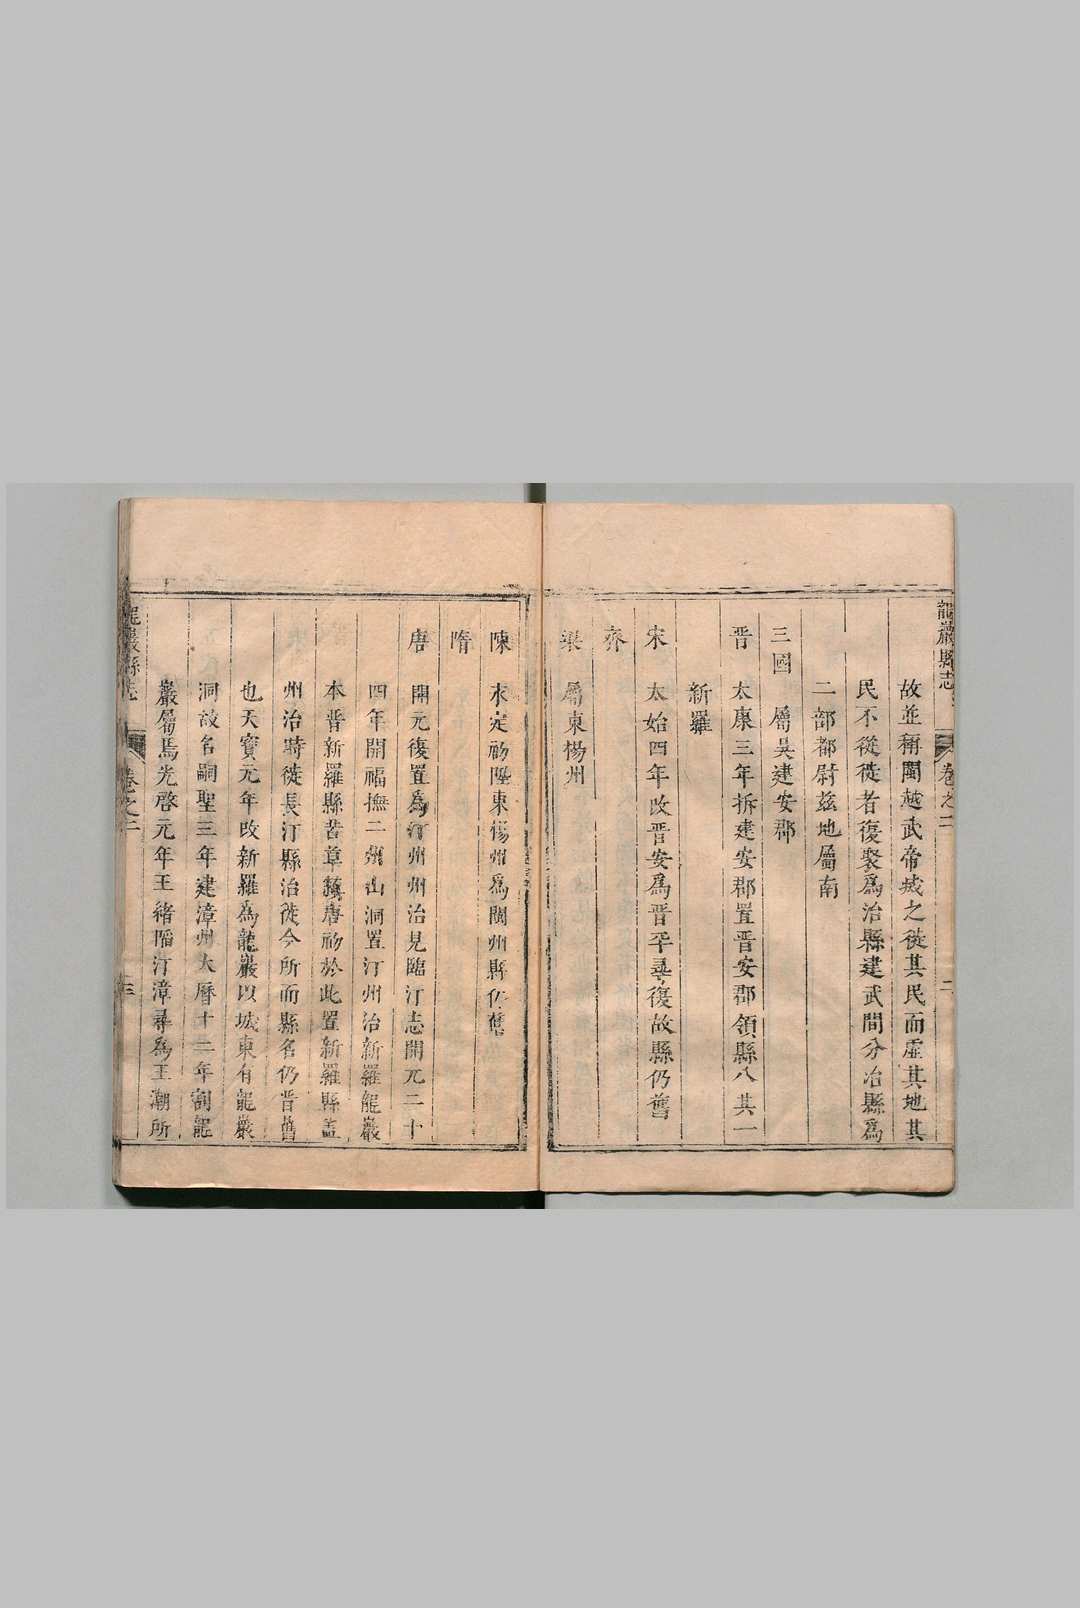 龍巖縣志 卷之二 二
故並稱閩越武帝滅之徙其民而虛其地其
民不從徙者復聚爲冶縣建武間分冶縣爲
二部都尉茲地屬南
三國 屬吳建安郡
晉 太康三年拆建安郡置晉安郡領縣八其一
新羅
宋 太始四年改晉安爲晉平尋復故縣仍舊
齊
梁 屬東楊州
陳 永定初陞東楊州爲閩州縣仍舊
隋
唐 開元復置爲汀州州治見臨汀志開元二十
四年開福撫二州山洞置汀州治新羅龍巖
本晉新羅縣苦草鎮唐初於此置新羅縣盖
州治時徙長汀縣治徙今所而縣名仍晉舊
也天寶元年改新羅爲龍巖以城東有龍巖
洞故名嗣聖三年建漳州大曆十二年割龍
巖屬焉光啓元年王緒陷汀漳尋爲王潮所
龍巖縣志 卷之二 三